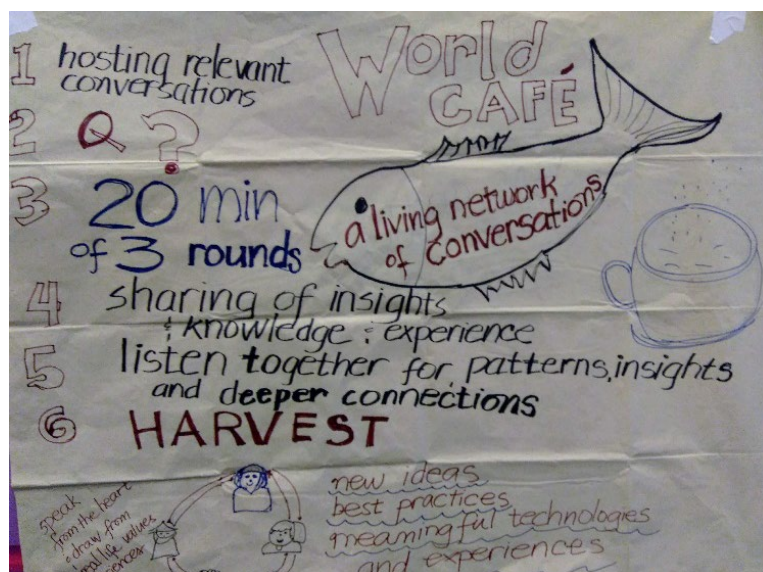 World
CAFÉ
1 hosting relevant
conversations
2 Q ?
3 20 min
of 3 rounds
a living network
of conversations
4 sharing of insights
& knowledge & experience
5 listen together for patterns, insights
and deeper connections
6 HARVEST
speak
from the heart
draw from
life values
new ideas
best practices
meamingful technologies
and experiences